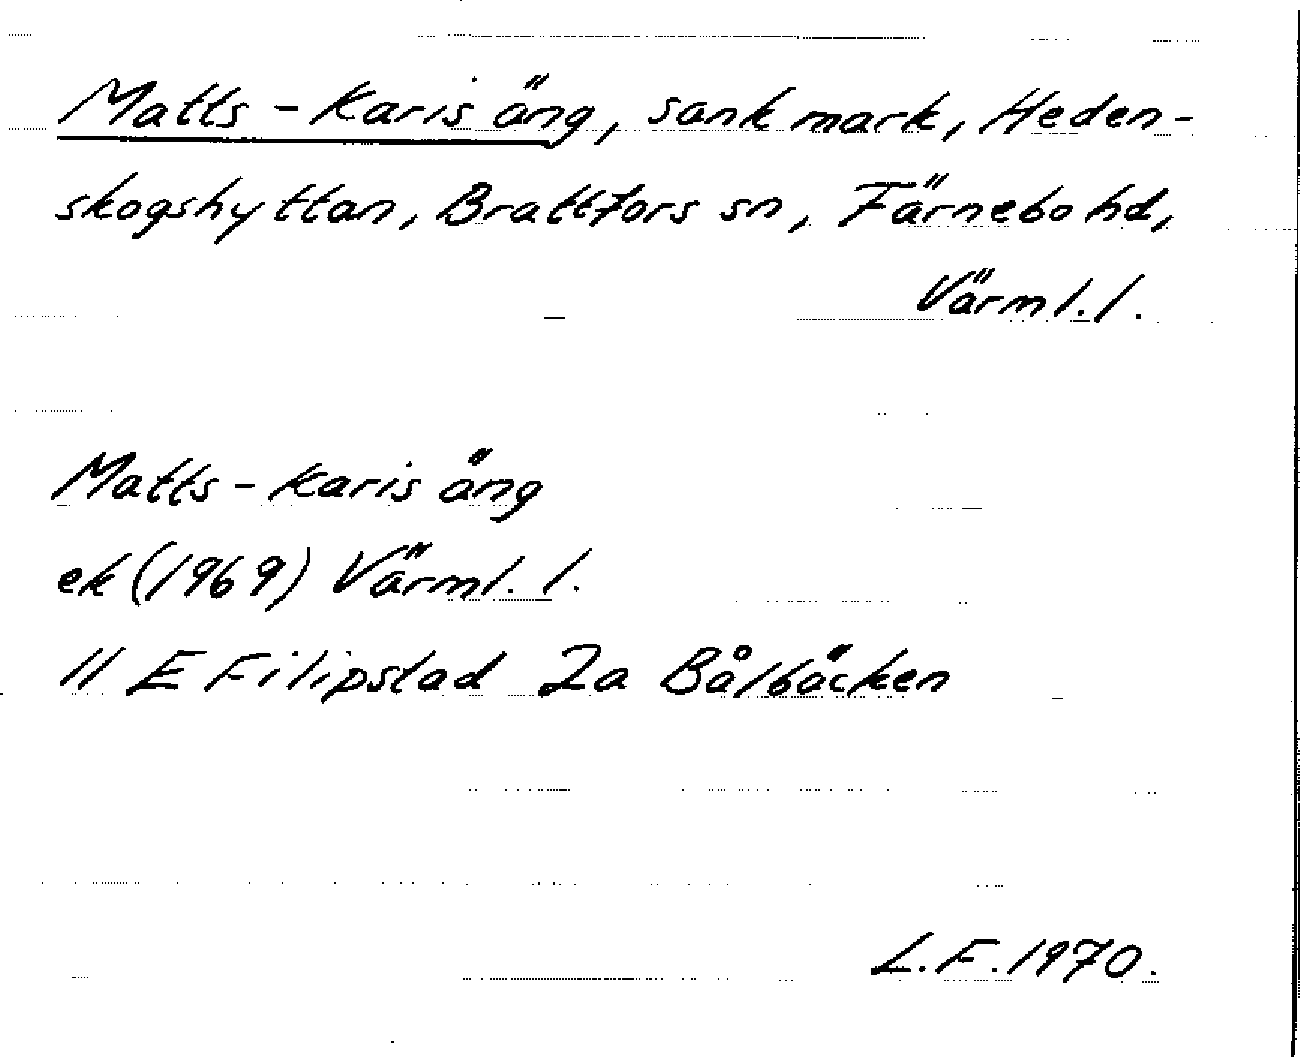 Matts-Karis äng, sank mark, Heden-
skogshyttan, Brattfors sn, Färnebo hd,
Värml. l.
Matts-Karis äng
ek (1969) Värml. l.
11 E Filipstad 2a Bålbäcken
L.F. 1970.